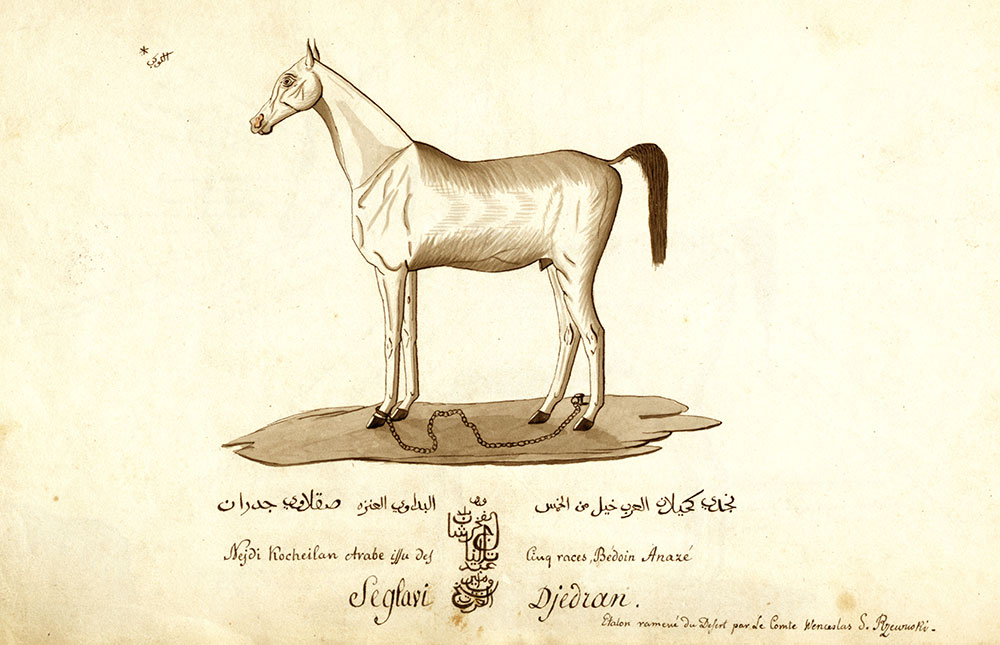 *
نجدي كحيلان العرب خيل من الخمس البداوي العنزه صقلاوي جدران
Nejdi Kocheilan Arabe issu des Cinq races, Bédoin Anazé
Séglavi Djédran.
Etalon ramené du Desert par Le Comte Wenceslas S. Rzewuski.